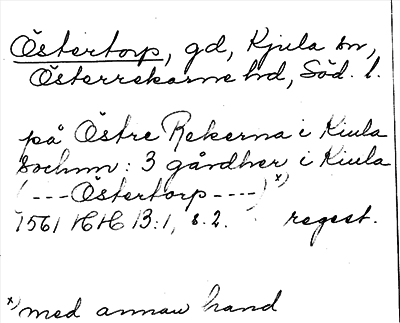 Östertorp, gd, Kjula sn,
Österrekarne hd, Söd. l.
på Östre Rekerna i Kiula
Sochnn: 3 gårdher i Kiula
(---Östertorp----)x)
1561 HH B:1, s. 2. regest.
x) med annan hand